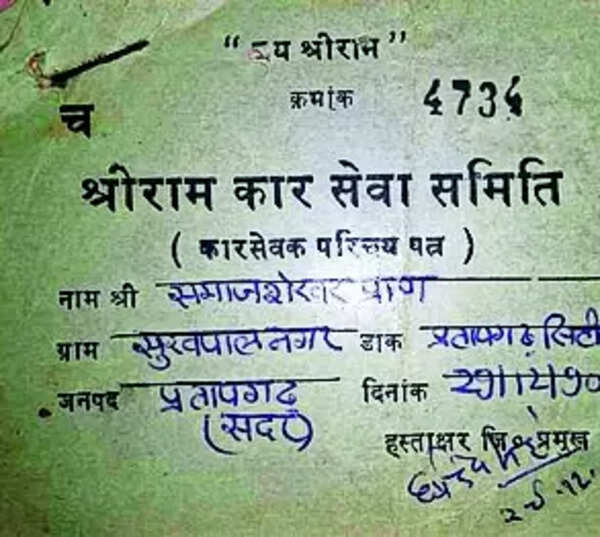 "जय श्रीराम"
क्रमांक 4734
च
श्रीराम कार सेवा समिति
( कारसेवक परिचय पत्र )
नाम श्री समाजशेखर प्राण
ग्राम सुखपालनगर डाक प्रतापगढ़ सिटी
जनपद प्रतापगढ़ दिनांक
(सदर)
हस्ताक्षर प्रमुख